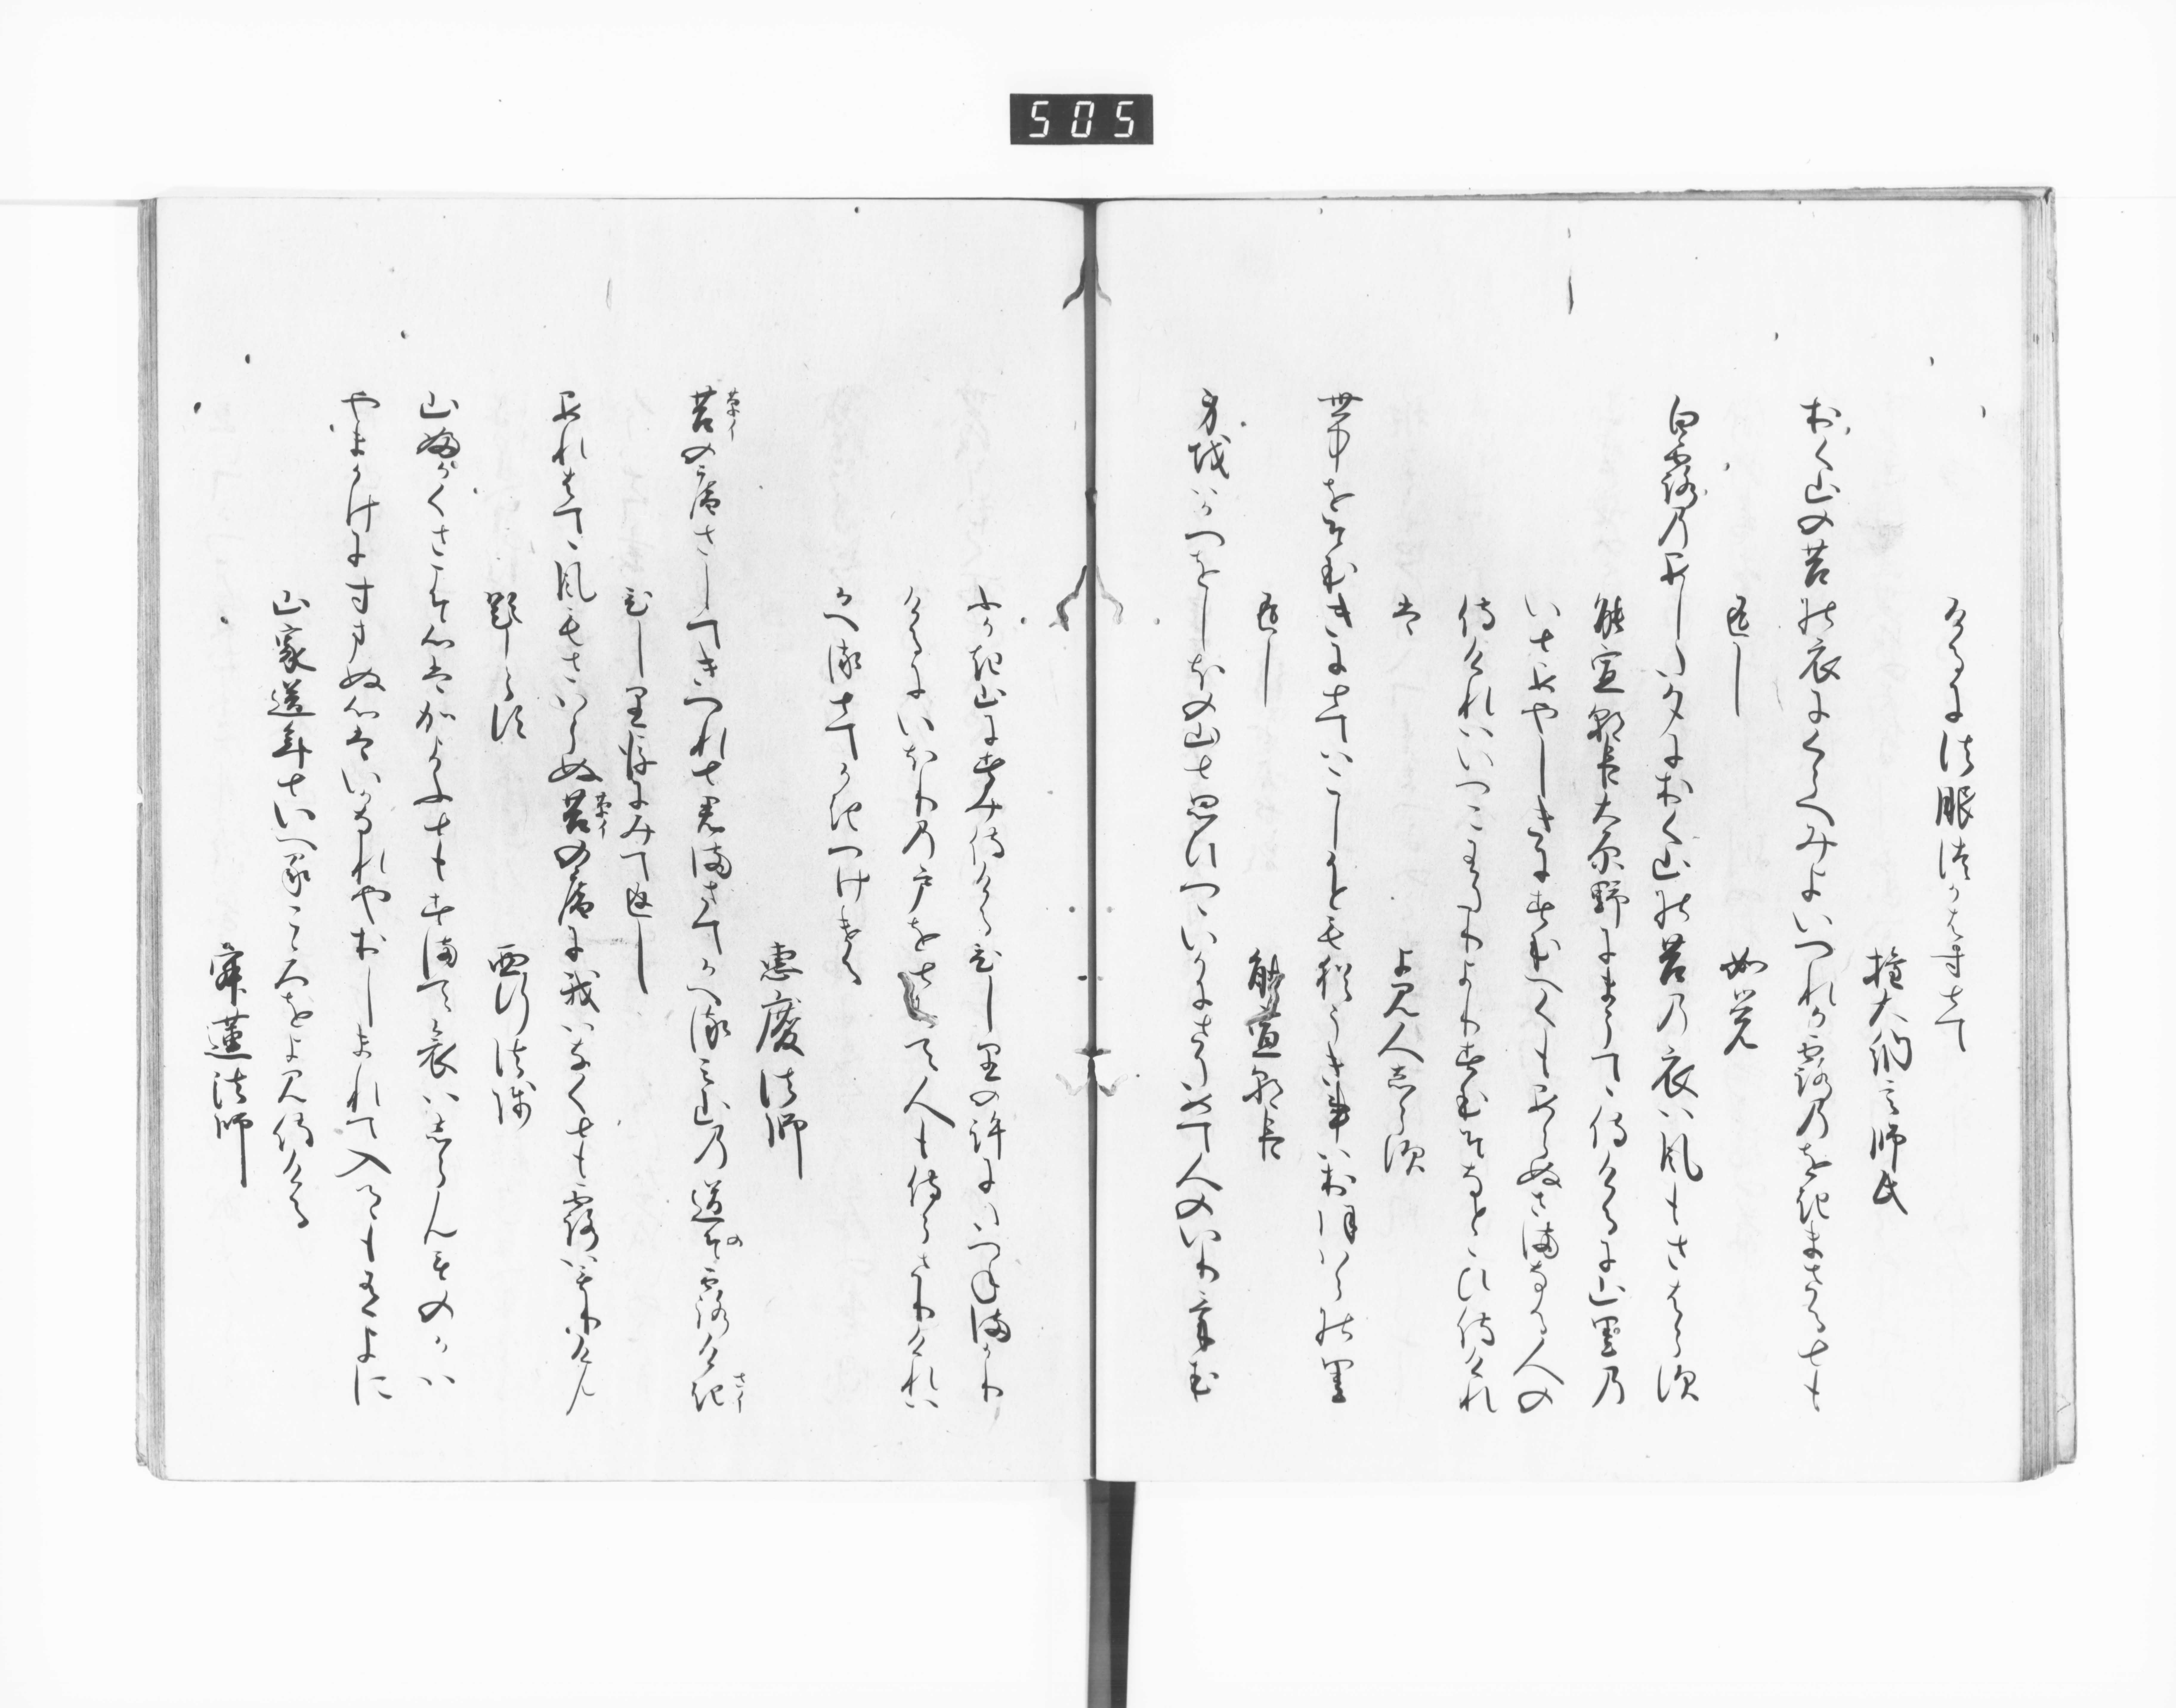 けるに法眼につかはすとて
権大納言師氏
おく山の苔の衣にくらへみよいつれか露のをきまさるとも
返し
如覚
白露のあしたゆふへにおく山の苔の衣は風もさはらす
能宣朝臣大原野にまうてゝ侍けるに山里の
いとあやしきにすむへくもあらぬさまなる人の
侍けれはいつこわたりよりすむそなととひ侍けれ
は
よみ人しらす
世中をそむきにとてはこしかとも猶うき事はおほはらの里
返し
能宣朝臣
身をはかつをしほの山と思ひつゝいかにさためて人のいりけむ
ふかき山にすみ侍けるひしりの許にたつねまかり
けるにいほりの戸をとちて人も侍らさりけれは
かへるとてかきつけける
恵慶法師
苔の庵さしてきつれと君まさてかへるみ山の道そ露けき
ひしり後にみて返し
あれはてゝ風もさはらぬ苔の庵に我はなくとも露はもりけん
題しらす
西行法師
山ふかくさこそ心はかよふともすまて哀はしらんものかは
やまかけにすまぬ心はいかなれやおしまれて入月もあるよに
山家送年といへるこゝろをよみ侍ける
寂蓮法師
505